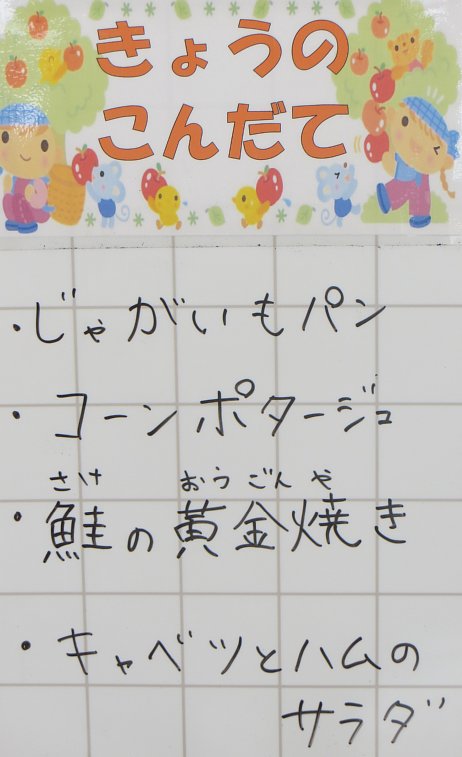 きょうの
こんだて
・じゃがいもパン
・コーンポタージュ
さけ おうごん や
・鮭の黄金焼き
・キャベツとハムの
サラダ